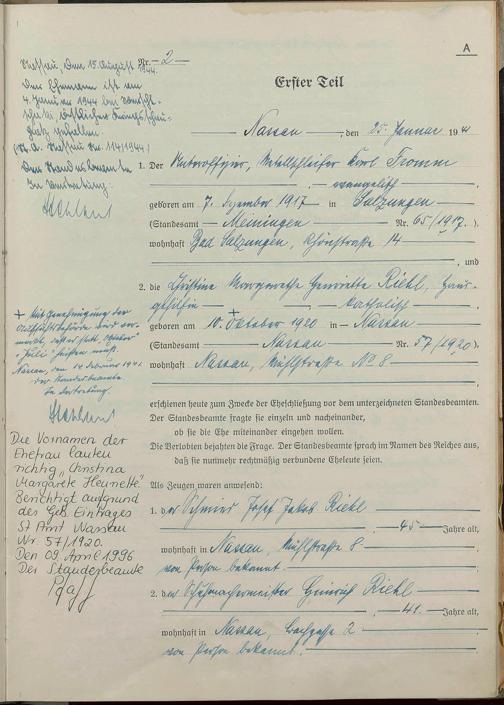 A
Nr. 2
Erster Teil
Nassau, den 25. Januar 1941
1. Der Unteroffizier, Metallschleifer Karl Fromm
evangelisch
geboren am 7. Dezember 1917 in Salzungen
(Standesamt Meiningen Nr. 65/1917.),
wohnhaft Bad Salzungen, 14
, und
2. die Christine Margarethe Henriette Riehl, Haus-
gehilfin katholisch
geboren am 10. + Oktober 1920 in Nassau
(Standesamt Nassau Nr. 57/1920)
wohnhaft Nassau, Mühlstraße No 8
erschienen heute zum Zwecke der Eheschließung vor dem unterzeichneten Standesbeamten.
Der Standesbeamte fragte sie einzeln und nacheinander,
ob sie die Ehe miteinander eingehen wollen.
Die Verlobten bejahten die Frage. Der Standesbeamte sprach im Namen des Reiches aus,
daß sie nunmehr rechtmäßig verbundene Eheleute seien.
Als Zeugen waren anwesend:
1. der Schmied Josef Jakob Riehl
, 45 Jahre alt,
wohnhaft in Nassau, Mühlstraße 8
von Person bekannt
2. der Schuhmachermeister Heinrich Riehl
, 41 Jahre alt,
wohnhaft in Nassau, 2
von Person bekannt.
Nassau, den 15. August
1944.
Der Ehemann ist am
4. Januar 1944
gefallen.
(St. A. Nassau Nr. 114/1944)
Der Standesbeamte
In Vertretung
+ Mit Genehmigung der
Aufsichtsbehörde wird ver-
merkt, daß es statt "Oktober"
"Juli" heißen muß.
Nassau, den 14 Februar 1941
der Standesbeamte
In Vertretung
Die Vornamen der
Ehefrau lauten
richtig „Christina
Margarete Henriette"
Berichtigt aufgrund
des Geb Eintrages
St Amt Nassau
Nr. 57/1920.
Den 09. April 1996
Der Standesbeamte